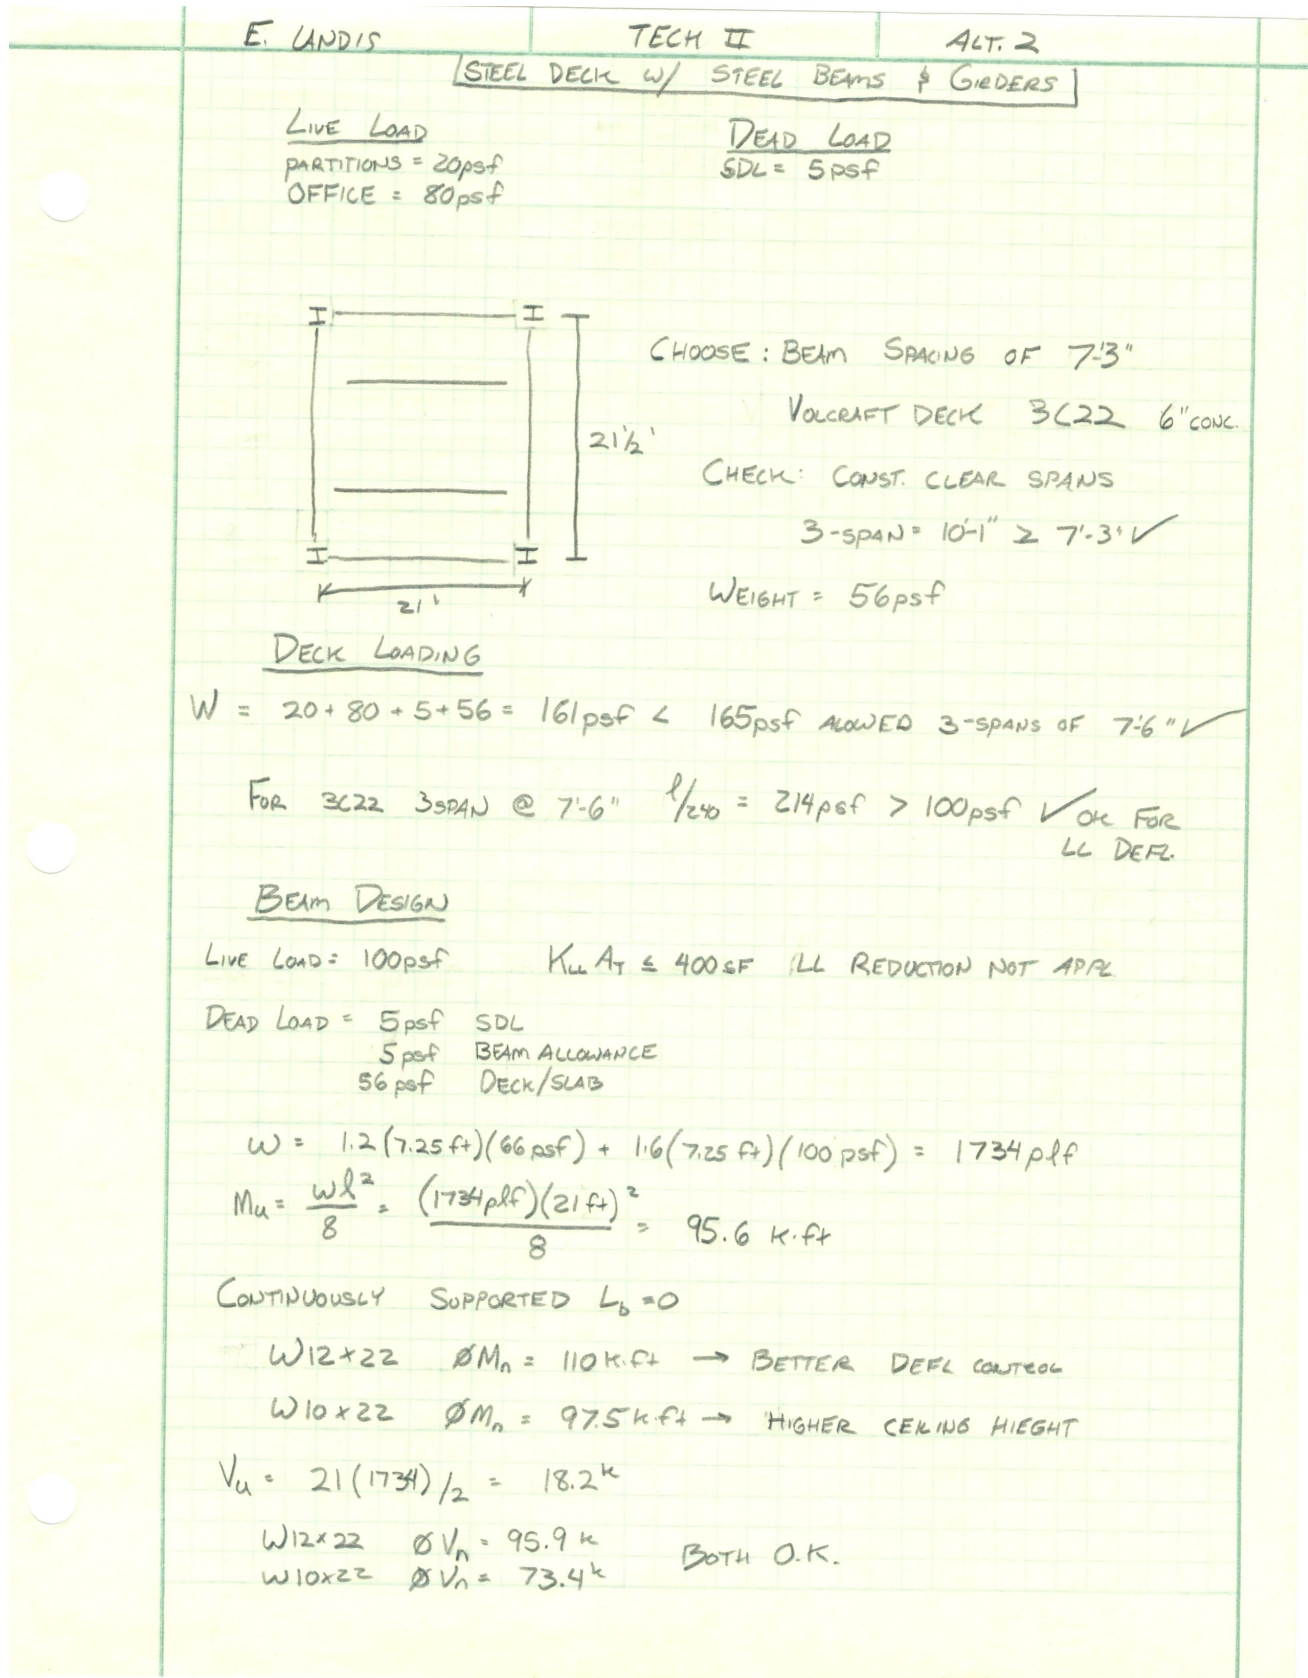 E. LANDIS TECH II ALT. 2
STEEL DECK W/ STEEL BEAMS & GIRDERS
LIVE LOAD DEAD LOAD
PARTITIONS = 20psf SDL = 5psf
OFFICE = 80psf
CHOOSE: BEAM SPACING OF 7'-3"
VOLCRAFT DECK 3C22 6" CONC.
21½'
CHECK: CONST. CLEAR SPANS
3-SPAN = 10'-1" ≥ 7'-3" ✓
WEIGHT = 56psf
21'
DECK LOADING
W = 20+80+5+56 = 161psf < 165psf ALOWED 3-SPANS OF 7'-6" ✓
FOR 3C22 3SPAN @ 7'-6" l/240 = 214psf > 100psf ✓ OK FOR
LL DEFL.
BEAM DESIGN
LIVE LOAD = 100psf KLL AT ≤ 400SF LL REDUCTION NOT APPL.
DEAD LOAD = 5psf SDL
5psf BEAM ALLOWANCE
56psf DECK/SLAB
W = 1.2(7.25 ft)(66psf) + 1.6(7.25 ft)(100psf) = 1734plf
Mu = wl²/8 = (1734plf)(21ft)²/8 = 95.6 k·ft
CONTINUOUSLY SUPPORTED Lb = 0
W12×22 ØMn = 110 k·ft → BETTER DEFL CONTROL
W10×22 ØMn = 97.5 k·ft → HIGHER CEILING HIEGHT
Vu = 21(1734)/2 = 18.2k
W12×22 ØVn = 95.9k
BOTH O.K.
W10×22 ØVn = 73.4k